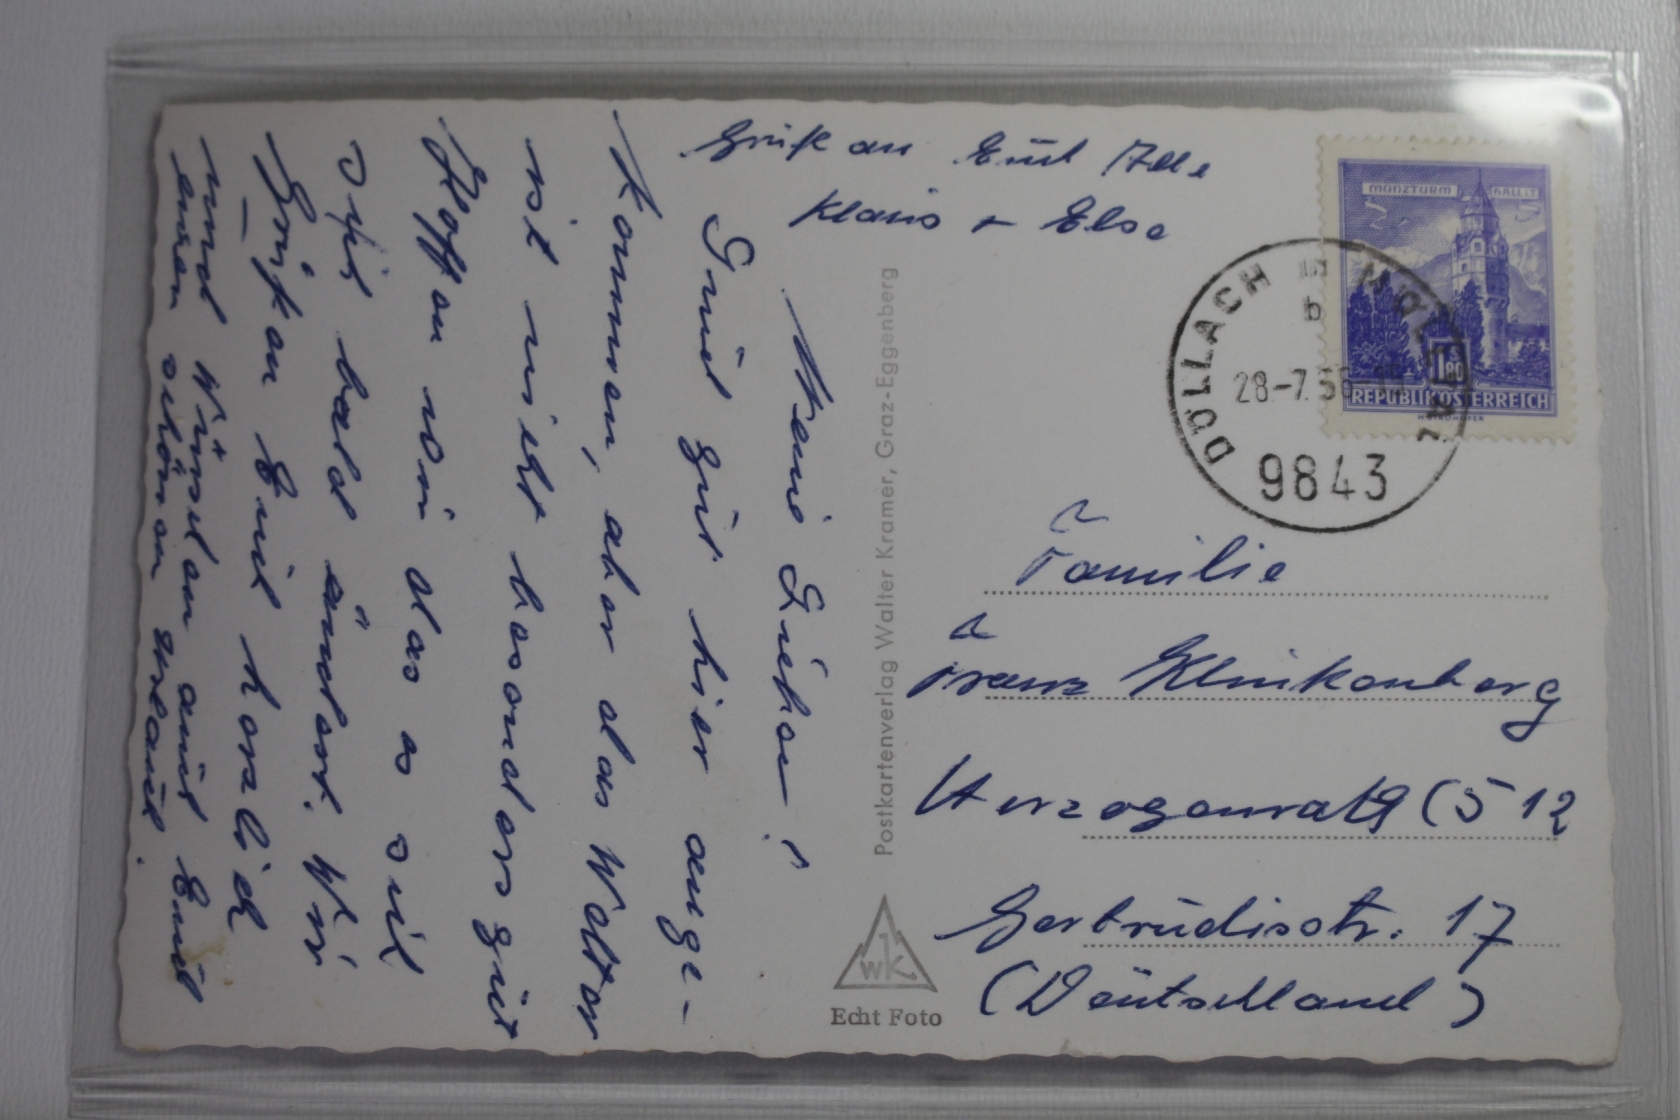 Meine Lieben!
Sind gut hier ange-
kommen, aber das Wetter
ist nicht besonders gut
Hoffen wir das es sich
sich bald ändert. Wir
Grüßen Euch herzlich
und Wünschen auch Euch
einen schönen Urlaub.
Grüße an Euch Alle
Klaus + Else
Postkartenverlag Walter Kramer, Graz-Eggenberg
wk
Echt Foto
MÜNZTURM HALL i.T.
1.80
REPUBLIK ÖSTERREICH
DÖLLACH IM MÖLLTAL
b
28.-7.
9843
Familie
Franz Klinkenberg
Herzogenrath (512
Gertrudisstr. 17
(Deutschland)